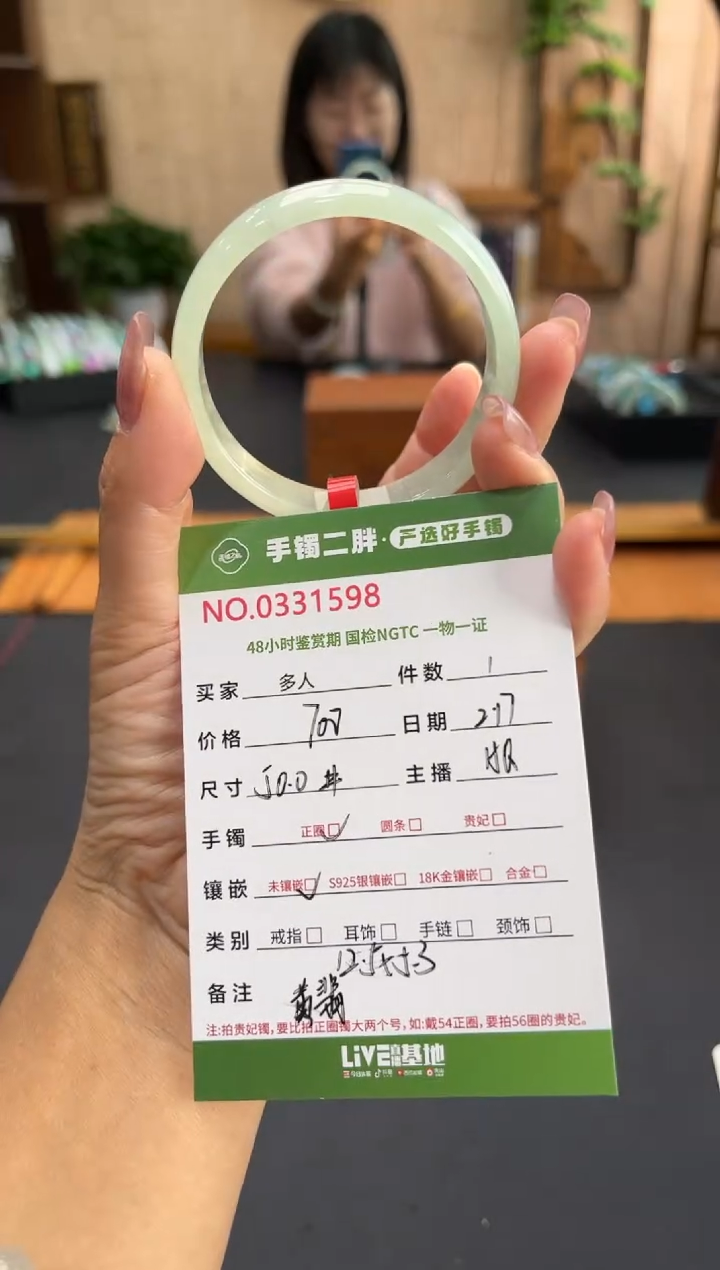 手镯二胖·严选好手镯
NO.0331598
48小时鉴赏期 国检NGTC 一物一证
买家 多人 件数 1
价格 700 日期 2.17
尺寸 50.0 主播
手镯 正圈 圆条 贵妃
镶嵌 未镶嵌 S925银镶嵌 18K金镶嵌 合金
类别 戒指 耳饰 手链 颈饰
备注
黄翡
注:拍贵妃镯,要比拍正圈镯大两个号,如:戴54正圈,要拍56圈的贵妃。
LiVE直播基地